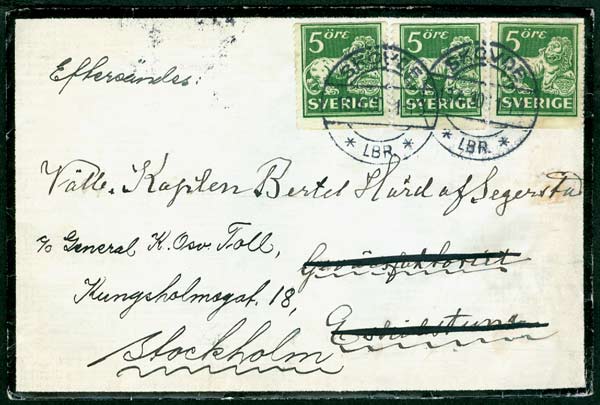 5 ÖRE 5 ÖRE 5 ÖRE
SVERIGE SVERIGE SVERIGE
SKÖVDE SKÖVDE
* LBR. * * LBR. *
Eftersändes.
Välb. Kapten Bertel Hård af Segerstad
c/o General K. Osv. Toll,
Gevärsfaktoriet
Kungsholmsgat. 18,
Eskilstuna
Stockholm